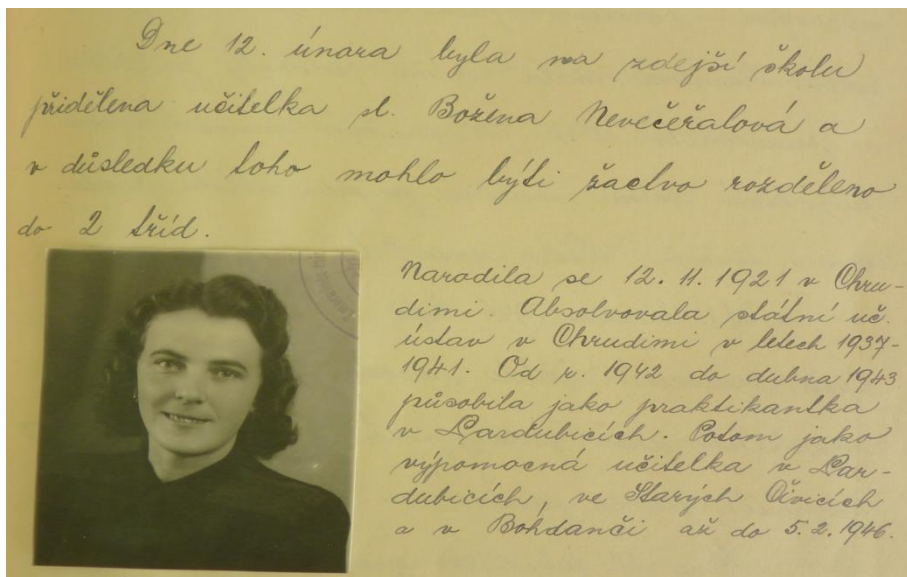 Dne 12. února byla na zdejší školu
přidělena učitelka sl. Božena Nevečeřalová a
v důsledku toho mohlo býti žactvo rozděleno
do 2 tříd.
Narodila se 12. 11. 1921 v Chru-
dimi. Absolvovala státní uč.
ústav v Chrudimi v letech 1937-
1941. Od r. 1942 do dubna 1943
působila jako praktikantka
v Pardubicích. Potom jako
výpomocná učitelka v Par-
dubicích, ve Starých Čivicích
a v Bohdanči až do 5. 2. 1946.